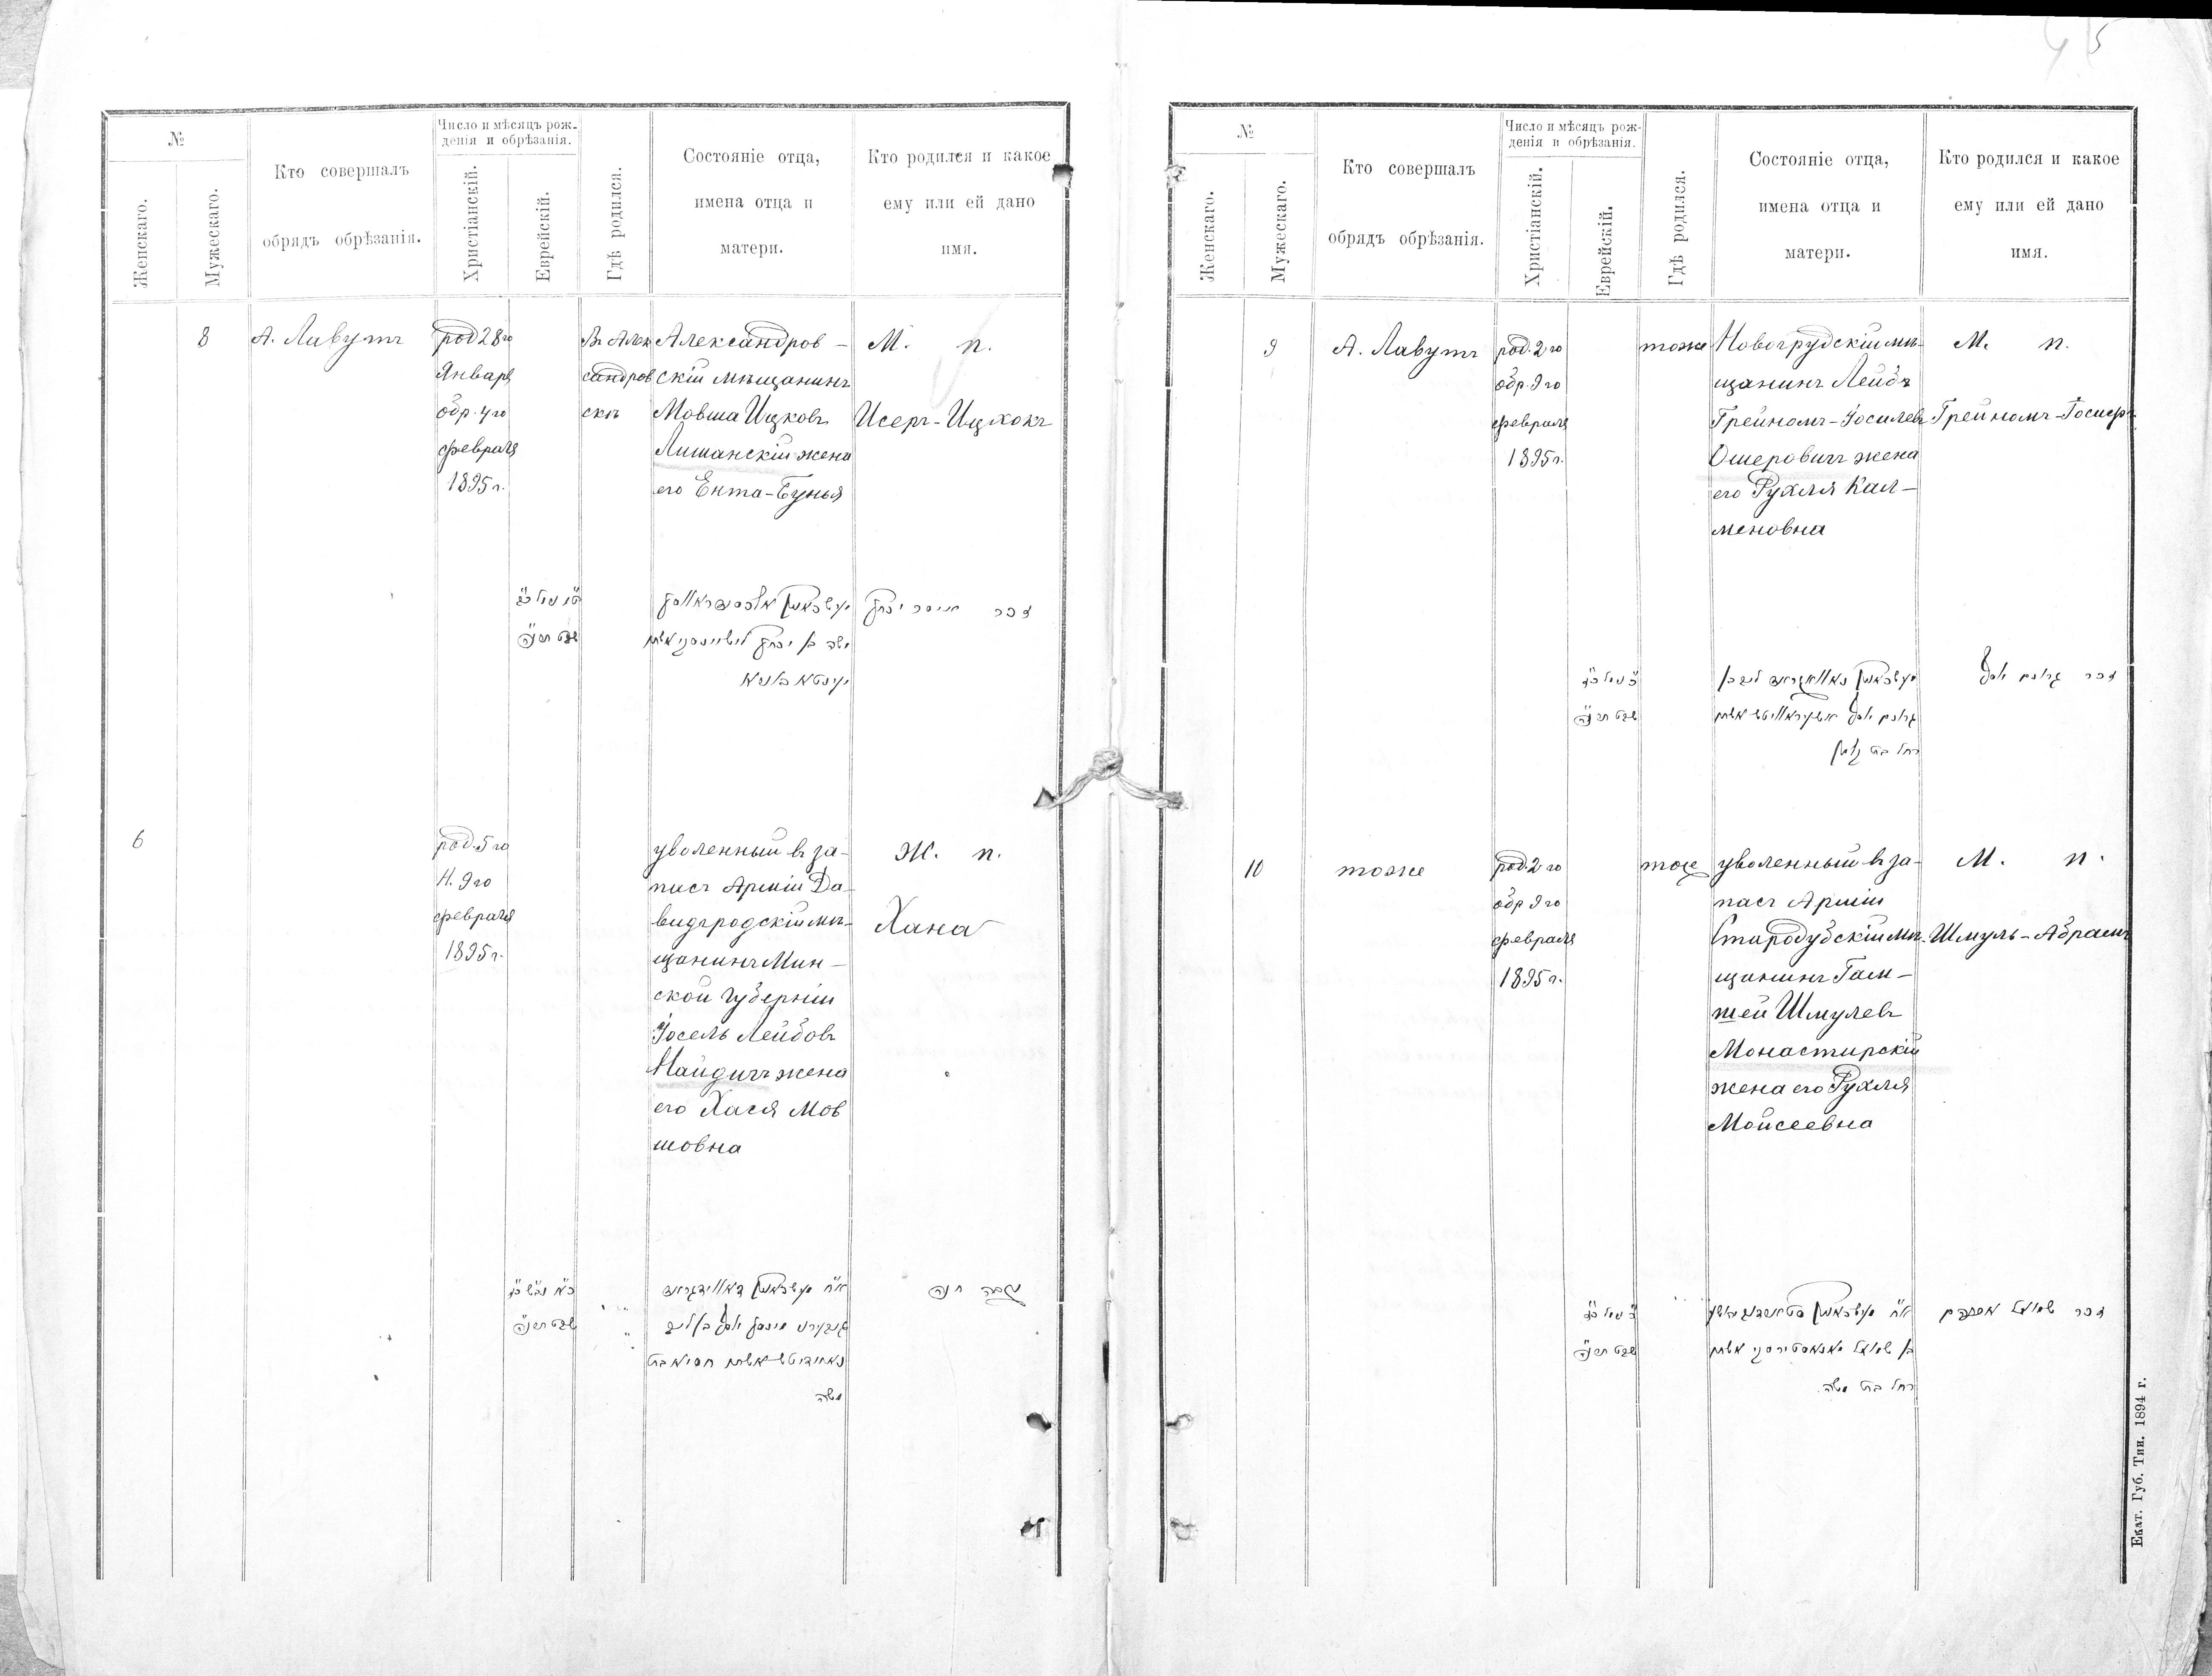 45
№
Женскаго.
Мужескаго.
Кто совершалъ
обрядъ обрѣзанія.
Число и мѣсяцъ рож-
денія и обрѣзанія.
Христіанскій.
Еврейскій.
Гдѣ родился.
Состояніе отца,
имена отца и
матери.
Кто родился и какое
ему или ей дано
имя.
8
А. Лавутъ
род 28го
Января
обр. 4го
февраля
1895 г.
Въ Алек
сандров
скѣ
Александров-
скій мѣщанинъ
Мовша Ицковъ
Лишанскій жена
его Ента-Бунья
М. п.
Исеръ-Ицхокъ
שבט תרנ״ה
משה בן יצחק
זכר איסר יצחק
6
род. 5го
Н. 9го
февраля
1895 г.
уволенный въ за-
пасъ Арміи Да-
видгродскій мѣ-
щанинъ Мин-
ской губерніи
Іосель Лейбовъ
Найдичъ жена
его Хася Мов
шовна
Ж. п.
Хана
שבט תרנ״ה
משה
נקבה חנה
№
Женскаго.
Мужескаго.
Кто совершалъ
обрядъ обрѣзанія.
Число и мѣсяцъ рож-
денія и обрѣзанія.
Христіанскій.
Еврейскій.
Гдѣ родился.
Состояніе отца,
имена отца и
матери.
Кто родился и какое
ему или ей дано
имя.
9
А. Лавутъ
род. 2го
обр. 9го
февраля
1895 г.
тоже
Новогрудскій мѣ-
щанинъ Лейбъ
Грейномъ-Іосилевъ
Ошеровичъ жена
его Рухля Кал-
меновна
М. п.
Грейномъ-Іосифъ
שבט תרנ״ה
רחל בת קלמן
זכר גרונם יוסף
10
тоже
род 2го
обр 9го
февраля
1895 г.
тоже
уволенный въ за-
пасъ Арміи
Стародубскій мѣ-
щанинъ Гам-
шей Шмулевъ
Монастирскій
жена его Рухля
Мойсеевна
М. п.
Шмуль-Абрамъ
שבט תרנ״ה
רחל בת משה
זכר שמואל אברהם
Екат. Губ. Тип. 1894 г.